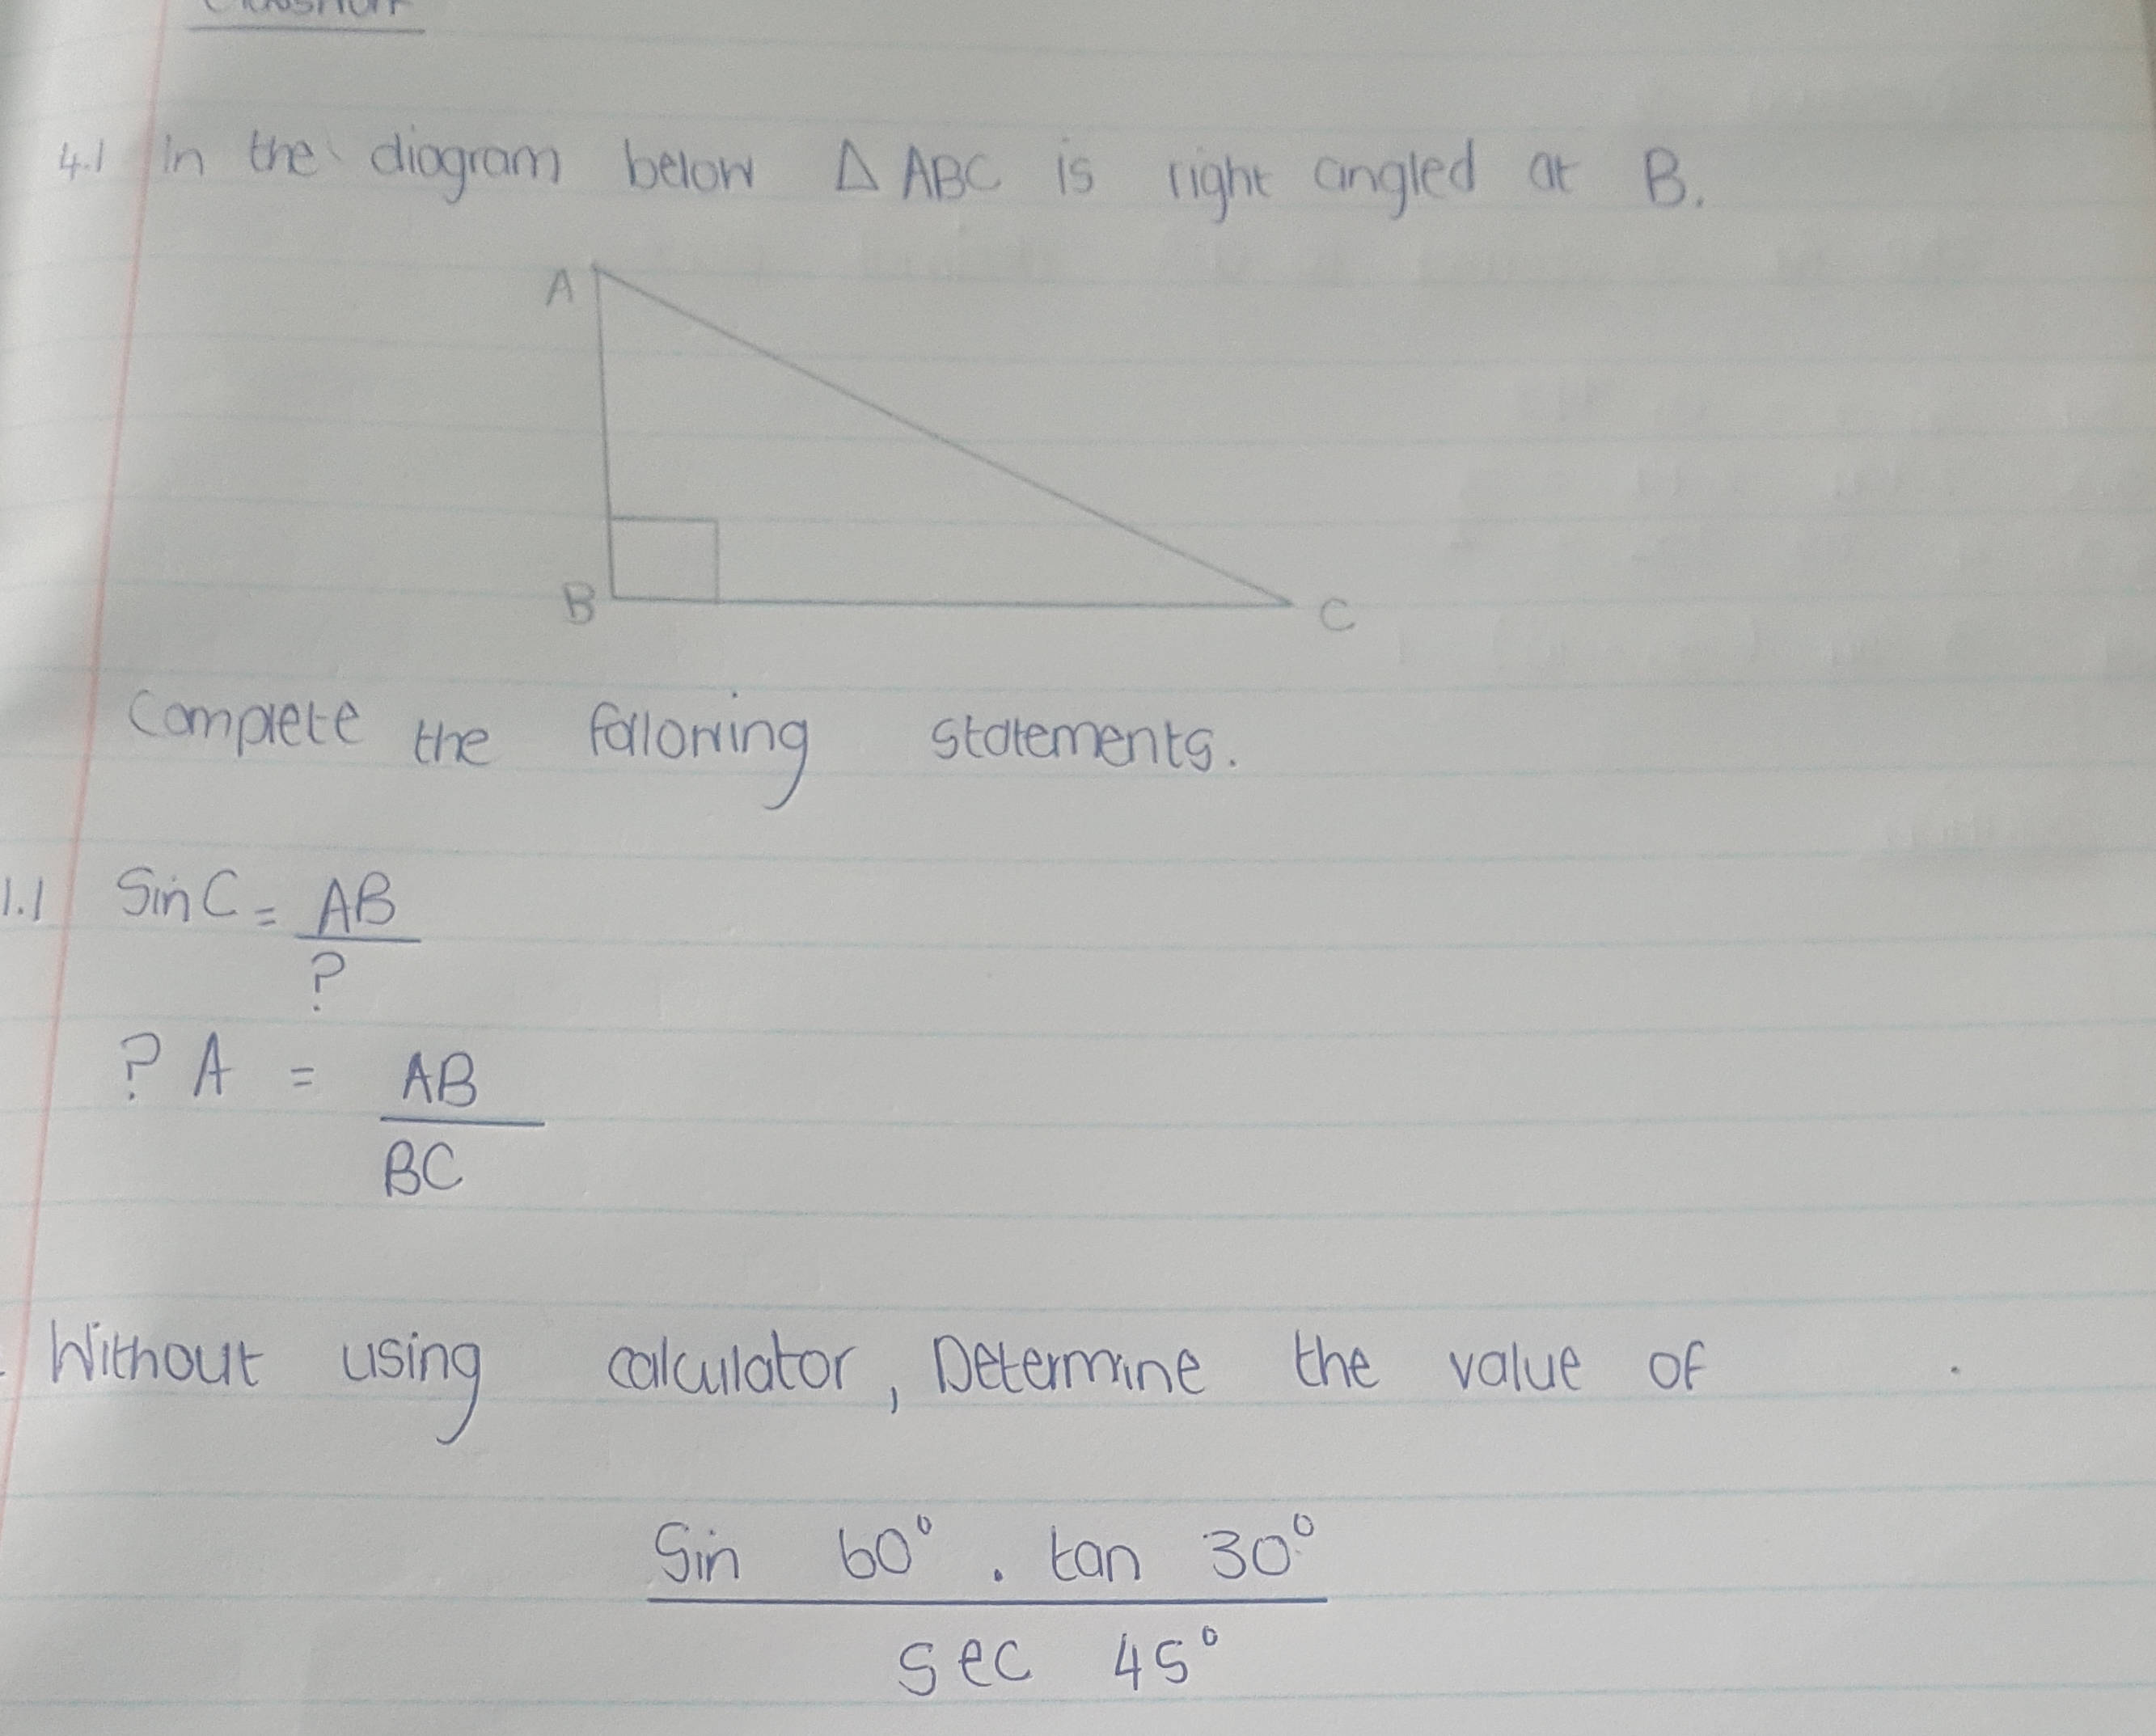 4.1 In the diagram below Δ ABC is right angled at B.
A
B
C
Complete the following statements.
1.1 Sin C = AB
?
? A = AB
BC
Without using calculator, Determine the value of
Sin 60° . tan 30°
sec 45°